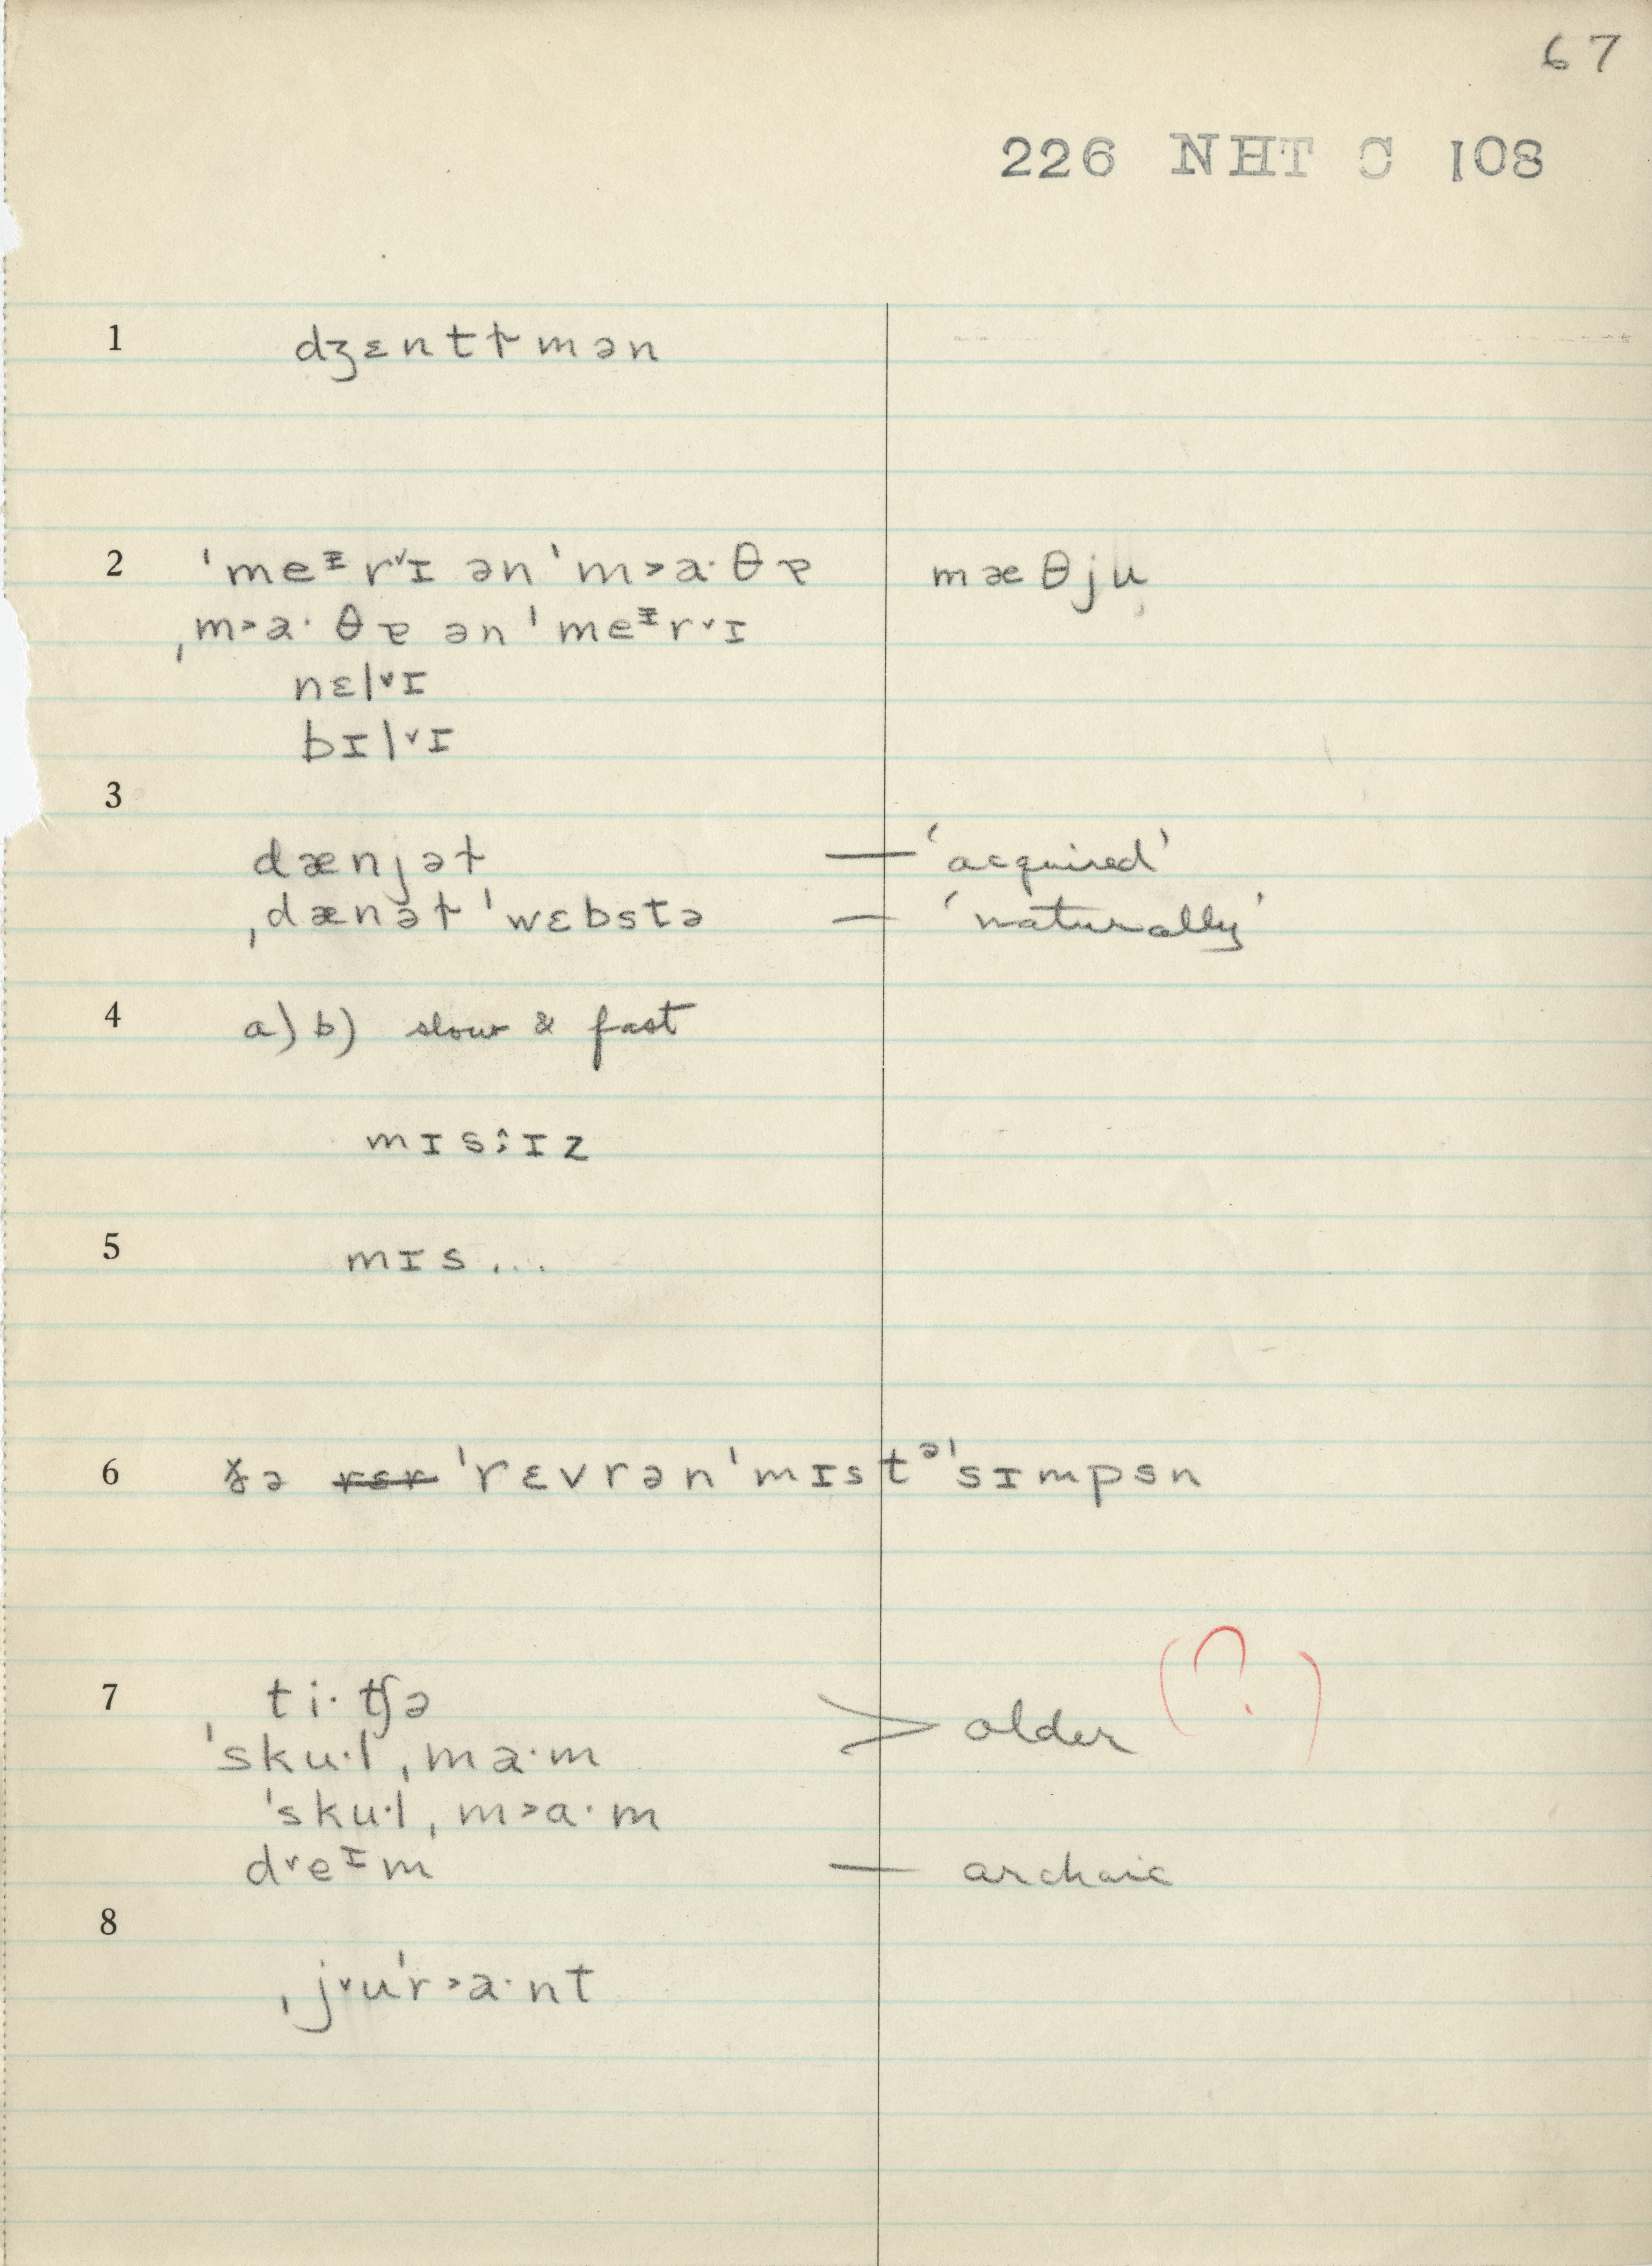 67
226 NHT C 108
1 dʒɛntɫmən
2 ˈmeᶦr˅ɪ ən ˈm˃a·θɐ mæθju
ˌm˃a·θɐ ən ˈmeᶦr˅ɪ
nɛl˅ɪ
bɪl˅ɪ
3
dænjəɫ — ‘acquired’
ˌdænəɫ ˈwɛbstə — ‘naturally’
4 a) b) slow & fast
mɪs:ɪz
5 mɪs...
6 ðə rɛr ˈrɛvrən ˈmɪstᵊ ˈsɪmpsn
7 ti·tʃə
ˈsku·l ˌma·m > older (?)
ˈsku·l ˌm˃a·m
d˅eᶦm — archaic
8
ˌj˅uˈr˃a·nt